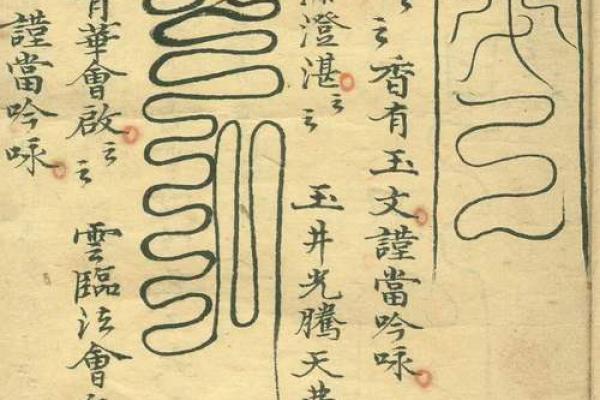 云香有玉文謹當吟咏
澄湛云云 玉井光騰天
華會啟云云 雲臨法會
謹當吟咏